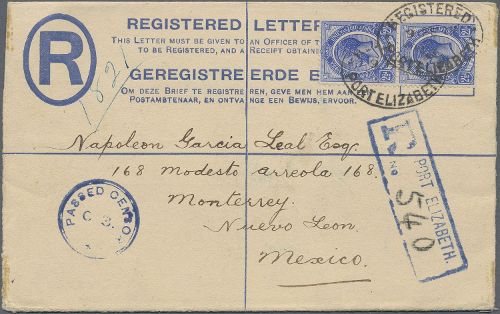 R
REGISTERED LETTER
THIS LETTER MUST BE GIVEN TO AN OFFICER OF
TO BE REGISTERED, AND A RECEIPT OBTAINED
GEREGISTREERDE B
OM DEZE BRIEF TE REGISTREREN, GEVE MEN HEM AAN
POSTAMBTENAAR, EN ONTVANGE EEN BEWIJS, ERVOOR.
1821
REGISTERED
PORT ELIZABETH
Napoleon Garcia Leal Esq.
168 Modesto arreola 168.
Monterrey.
Nuevo Leon.
Mexico.
PASSED CENSOR
C. 3.
PORT ELIZABETH.
No
540